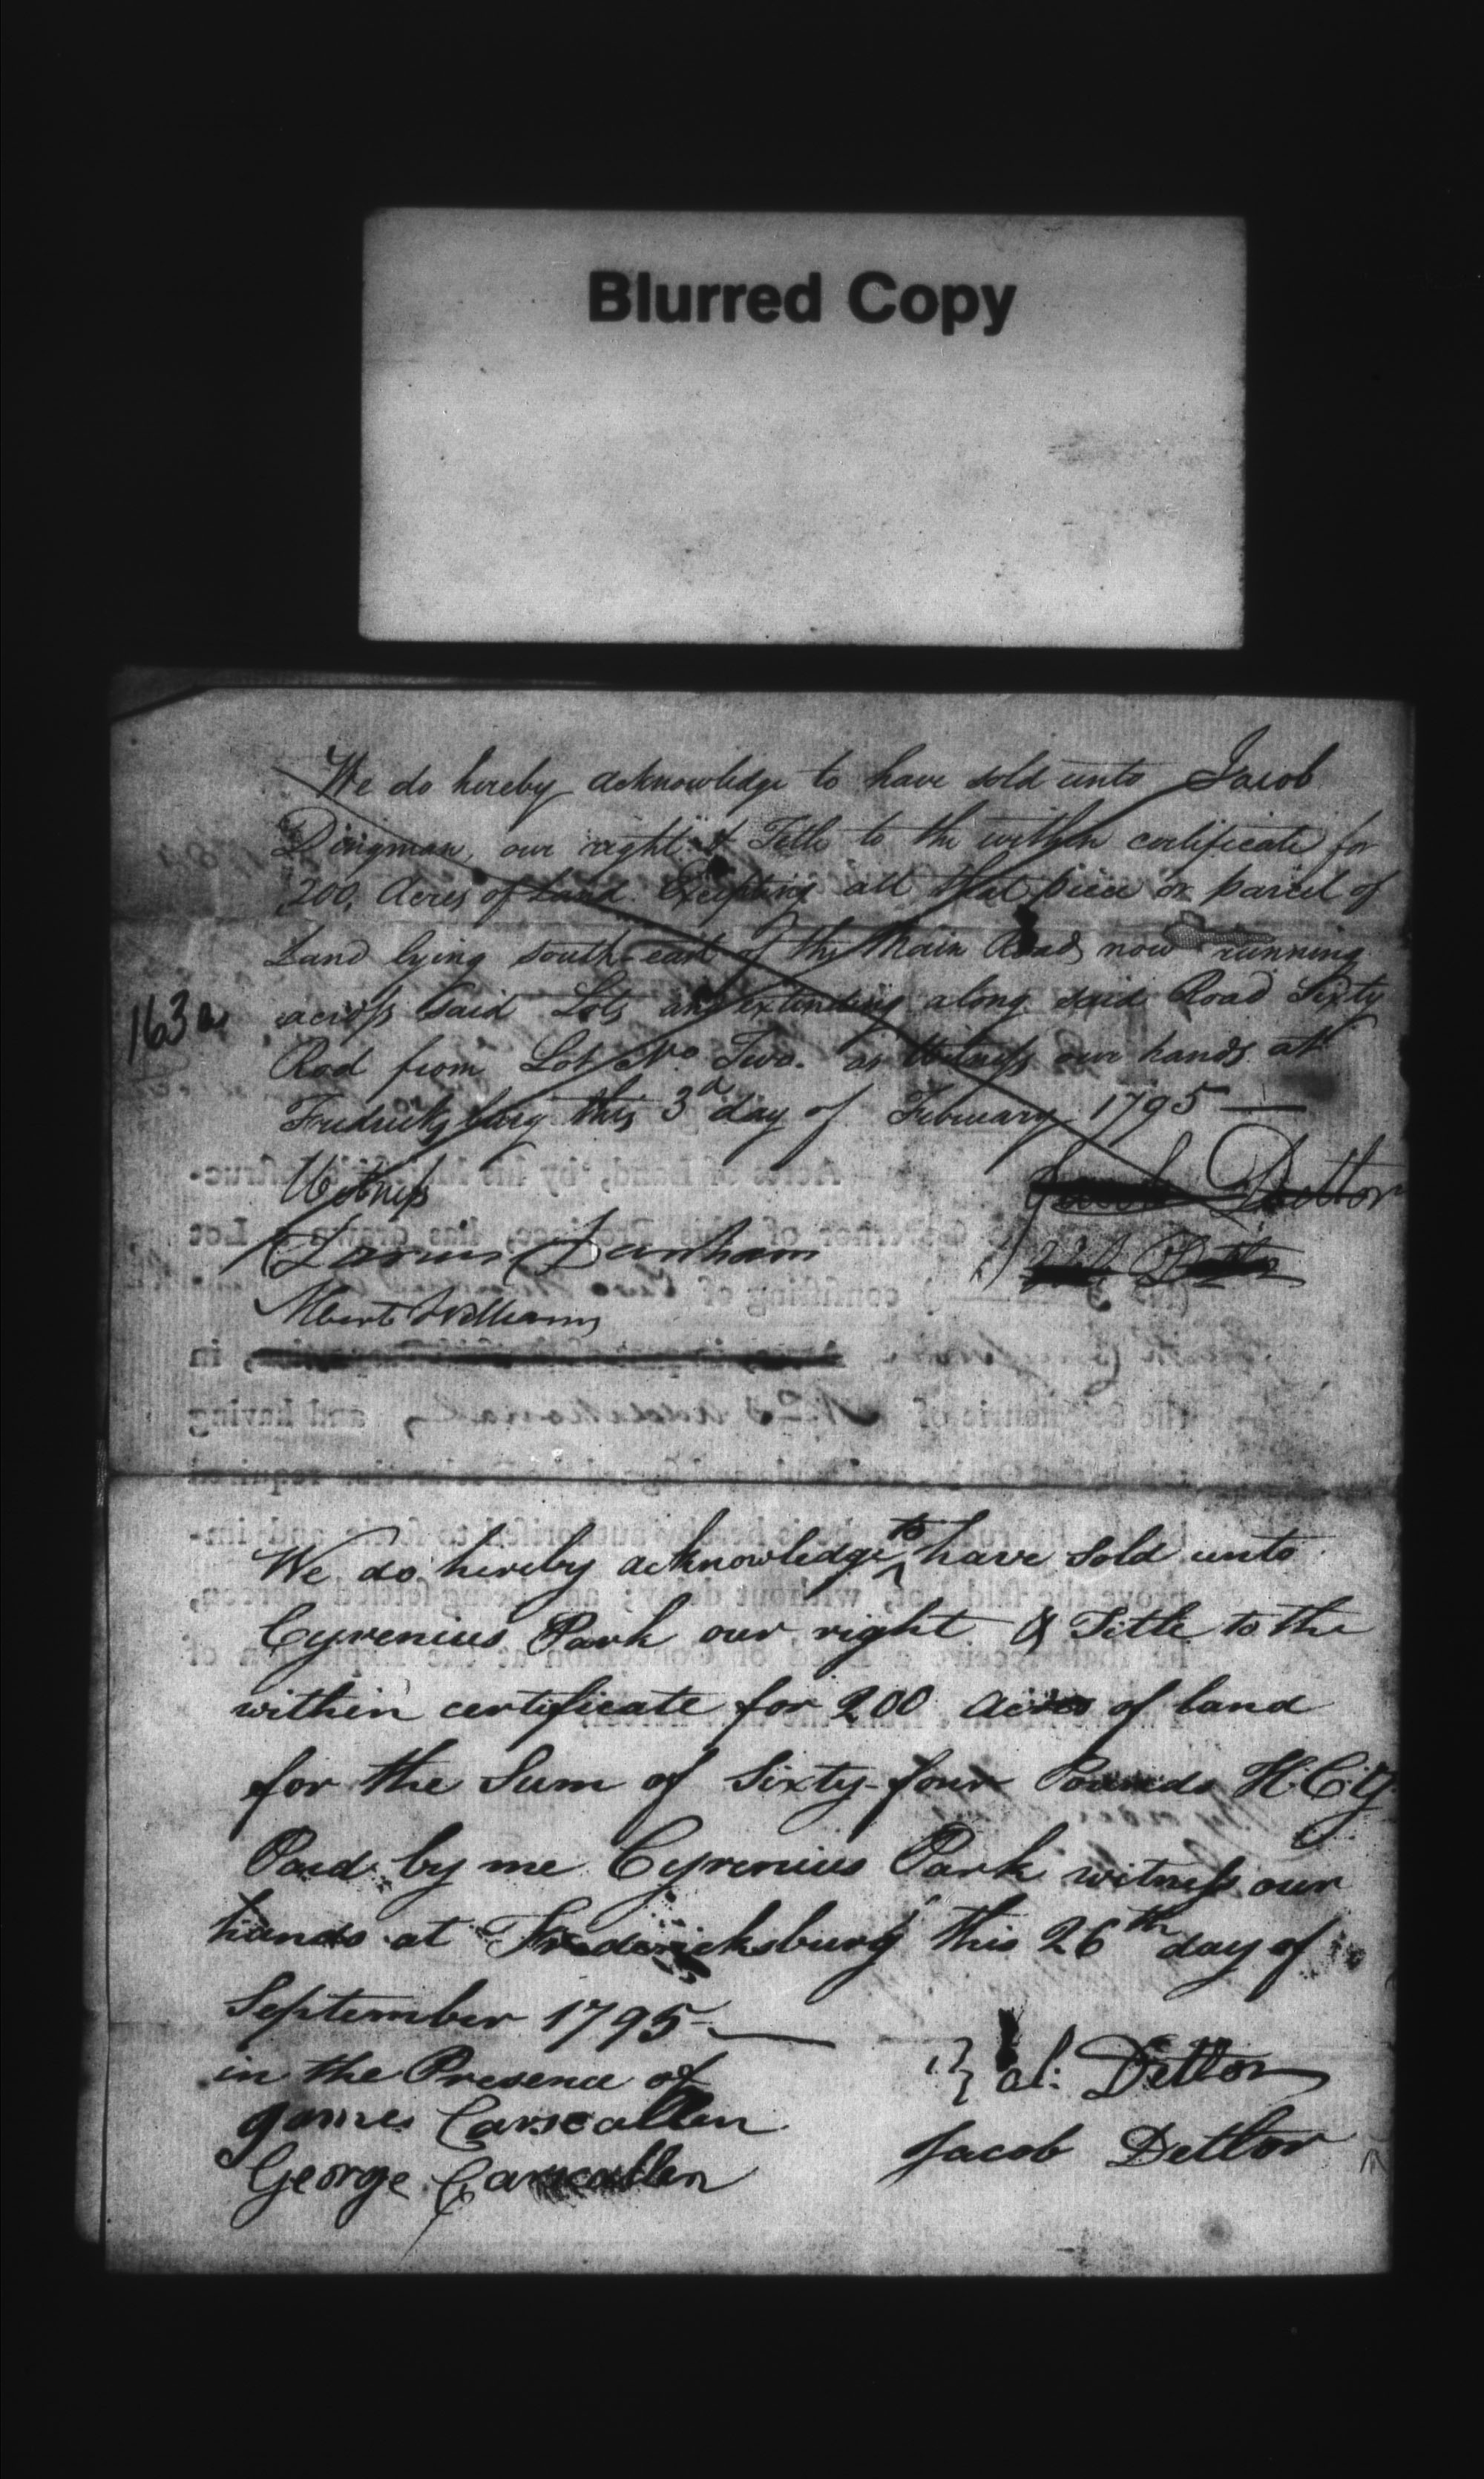 Blurred Copy
We do hereby acknowledge to have sold unto Jacob
Dingman, our right & Title to the within certificate for
200, Acres of Land. Excepting all that piece or parcel of
Land lying south-east of the Main Road now running
across said Lots and extending along said Road Sixty
163a
Rod from Lot No. Two. as Witness our hands at
Fredricksburg this 3d day of February 1795
Witness
Jacob Dettor
Darius Dunham
Dettor
Albert Williams
We do hereby acknowledge to have sold unto
Cyrenius Park our right & Title to the
within certificate for 200 acres of land
for the Sum of Sixty-four Pounds H.C.Y
Paid by me Cyrenius Park witness our
hands at Fredericksburg this 26th day of
September 1795
in the Presence of
Dettor
James Carscallen
Jacob Dettor
George Carscallen